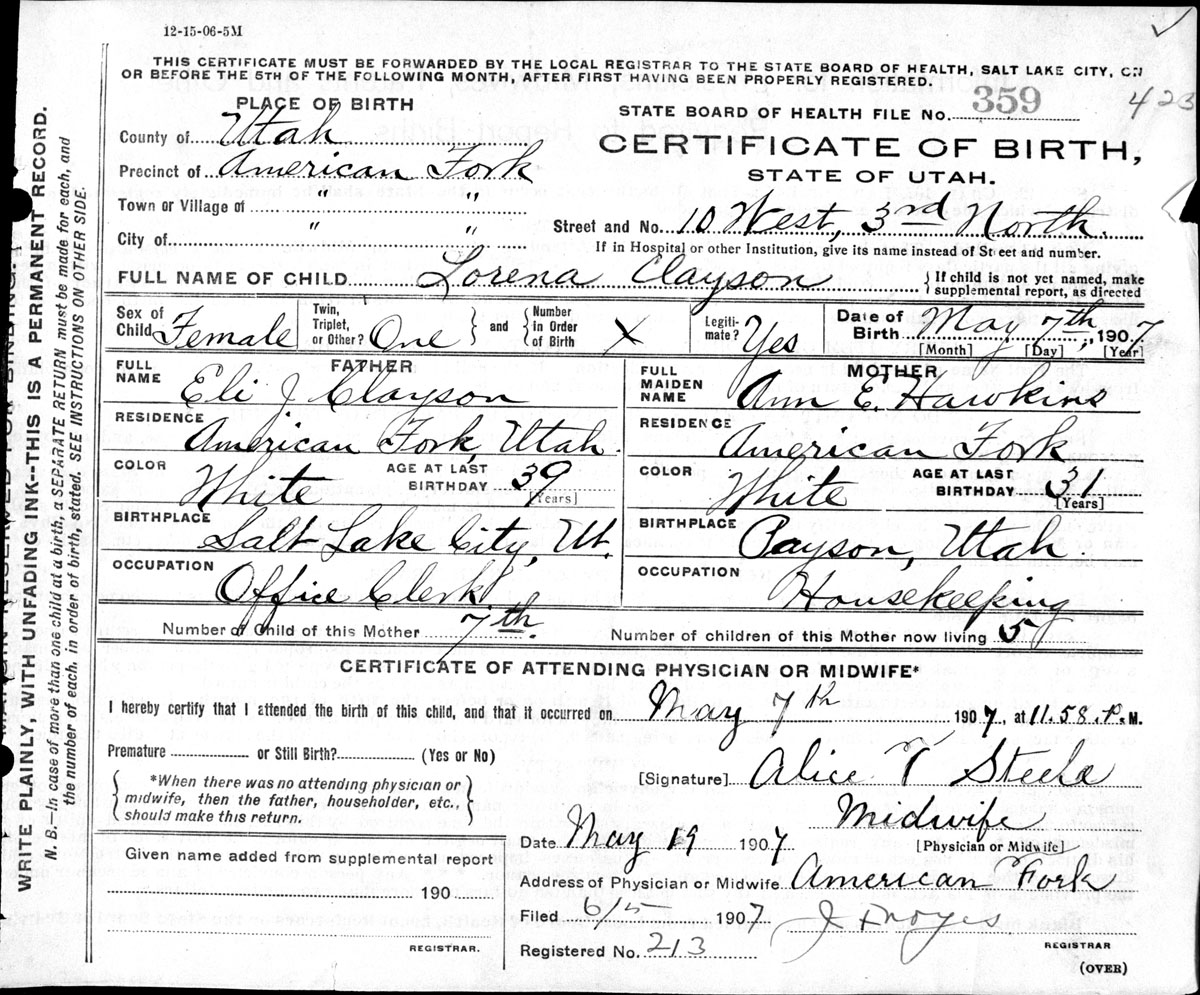 12-15-06-5M
THIS CERTIFICATE MUST BE FORWARDED BY THE LOCAL REGISTRAR TO THE STATE BOARD OF HEALTH, SALT LAKE CITY, ON
OR BEFORE THE 5TH OF THE FOLLOWING MONTH, AFTER FIRST HAVING BEEN PROPERLY REGISTERED.
423
PLACE OF BIRTH
County of Utah
Precinct of American Fork
Town or Village of " "
City of " "
STATE BOARD OF HEALTH FILE No. 359
CERTIFICATE OF BIRTH,
STATE OF UTAH.
Street and No. 10 West, 3rd North.
If in Hospital or other Institution, give its name instead of Street and number.
FULL NAME OF CHILD Lorena Clayson
{ If child is not yet named, make
supplemental report, as directed
Sex of Child Female
Twin, Triplet, or Other? One } and { Number in Order of Birth X
Legiti-mate? Yes
Date of Birth May 7th, 1907
[Month] [Day] [Year]
FATHER
FULL NAME Eli J Clayson
RESIDENCE American Fork, Utah.
COLOR White AGE AT LAST BIRTHDAY 39 [Years]
BIRTHPLACE Salt Lake City, Ut.
OCCUPATION Office Clerk.
MOTHER
FULL MAIDEN NAME Ann E. Hawkins
RESIDENCE American Fork
COLOR White AGE AT LAST BIRTHDAY 31 [Years]
BIRTHPLACE Payson, Utah.
OCCUPATION Housekeeping
Number of Child of this Mother 7th. Number of children of this Mother now living 5
CERTIFICATE OF ATTENDING PHYSICIAN OR MIDWIFE*
I hereby certify that I attended the birth of this child, and that it occurred on May 7th 1907, at 11.58.P.M.
Premature or Still Birth? (Yes or No)
{ *When there was no attending physician or
midwife, then the father, householder, etc.,
should make this return. }
[Signature] Alice T Steele
Midwife
[Physician or Midwife]
Date May 19 1907
Address of Physician or Midwife American Fork
Given name added from supplemental report
190
REGISTRAR.
Filed 6/5 1907 Noyes
Registered No. 213 REGISTRAR
(OVER)
WRITE PLAINLY, WITH UNFADING INK--THIS IS A PERMANENT RECORD.
N. B.—In case of more than one child at a birth, a SEPARATE RETURN must be made for each, and
the number of each, in order of birth, stated. SEE INSTRUCTIONS ON OTHER SIDE.